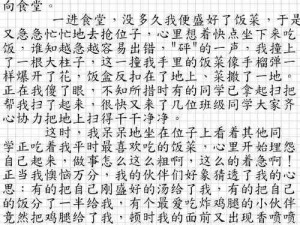 向食堂。
一进食堂，没多久我便盛好了饭菜，于是
又急急忙忙地去抢位子，心里想着快点坐下来吃
饭，谁知越急越容易出错，"砰"的一声，我撞上
了一根大柱子，这一撞我手里的饭菜像手榴弹一
样爆开了花，饭盒反扣在了地上、菜撒了一地。
正在我傻了眼，不知所措时有的同学已拿起扫把
帮我扫了起来，很快又来了几位班级同学大家齐
心协力把地上扫得干干净净。
这时，我呆呆地坐在位子上看着其他同
学正吃着我平时最喜欢吃的饭菜，心里开始埋怨
自己起来，做事怎么这么粗啊，这么的着急啊！
正当我懊恼万分，我的伙伴们好象猜透了我的心
思：有的把自己刚盛好的汤给了我，有的把自己
的饭分了一半给我，有个最爱吃炸鸡腿的小伙伴
竟然把鸡腿给了我，顿时我的面前又出现香喷喷